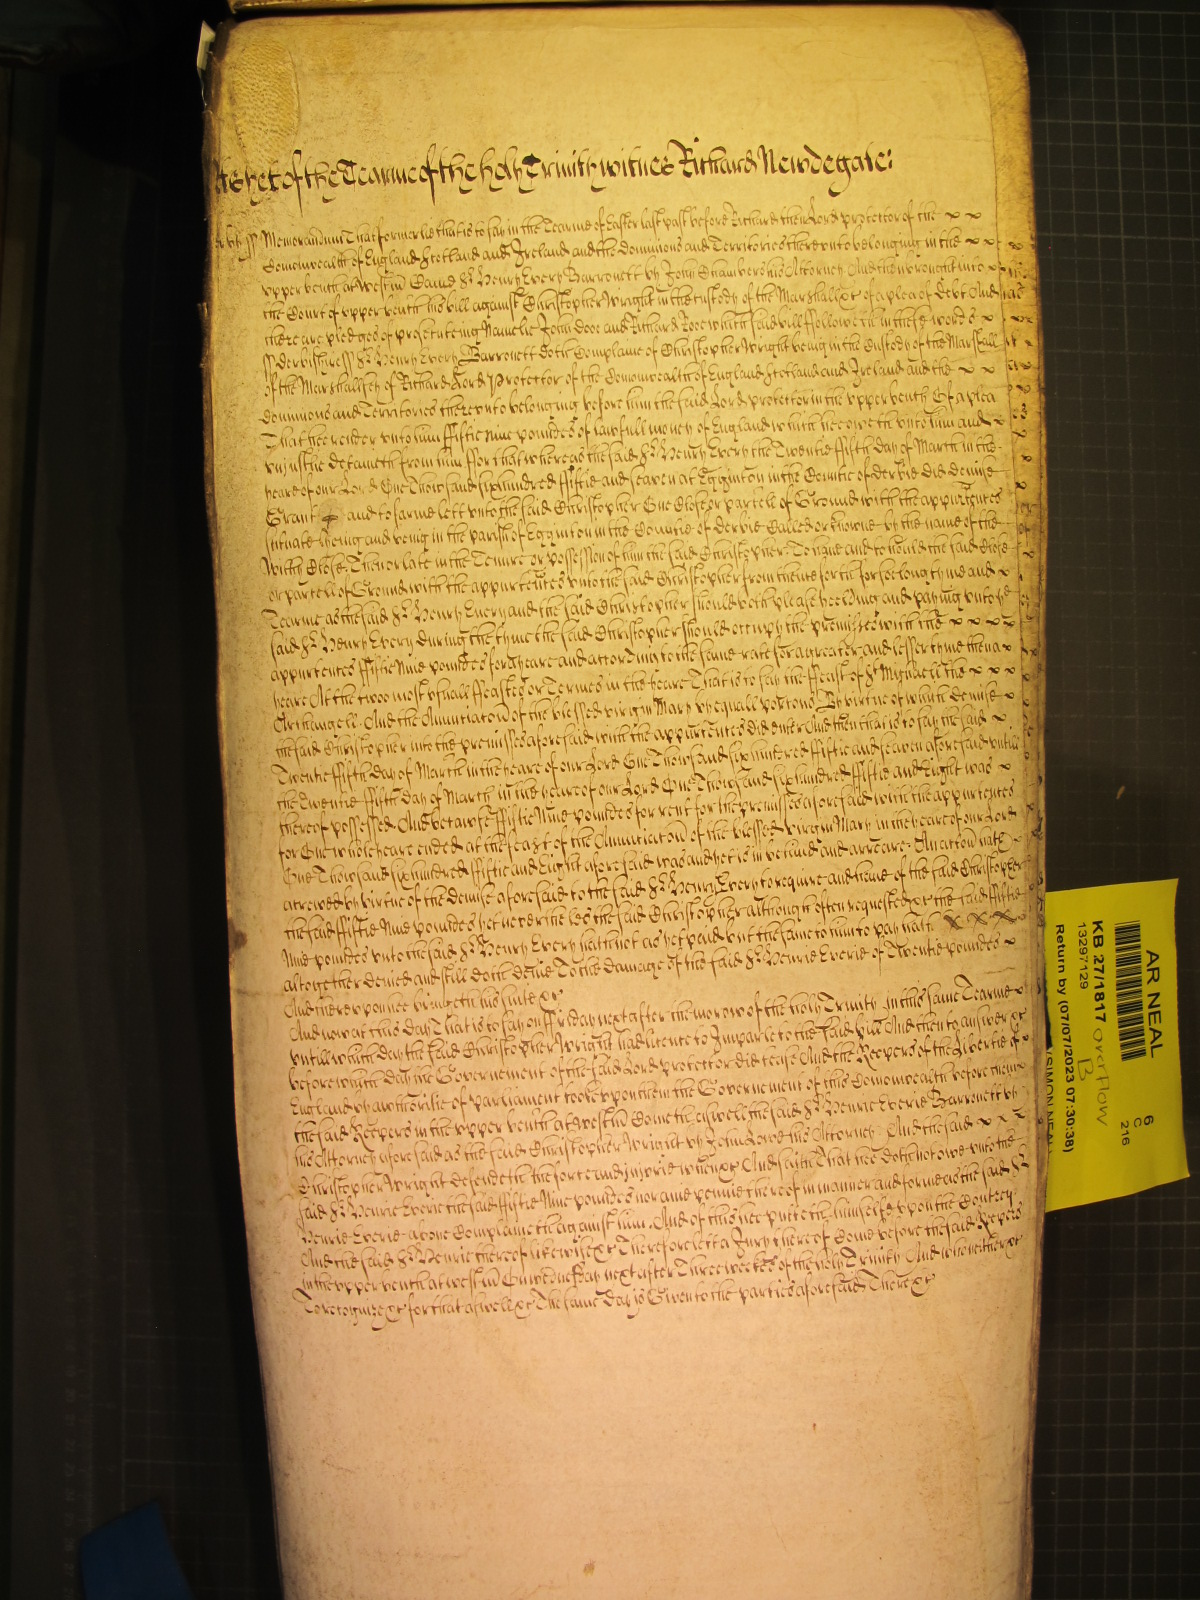 As yet of the Tearme of the holy Trinity witnes Richard Newdegate:
Memorandum That formerlie that is to say in the Tearme of Easter last past before Richard then Lord protector of the x x
Comonwealth of England Scotland and Ireland and the dominions and Territories therevnto belonging in the x x
vpper bench at Westm̃ Came Sr. Henry Every Barronett by John Chambers his Attorney And then brought into x
the Court of vpper bench his bill against Christopher Wright in the custody of the Marshall &c of a plea of debt And
there are pledges of prosecuteing Namelie John Dooe and Richard Rooe which said bill followeth in these words x
ss Derbishire ss Sr. Henry Every Barronett doth Complaine of Christopher Wright being in the Custody of the Marshall
of the Marshallsey of Richard Lord Protector of the Comonwealth of England Scotland and Ireland and the x x
dominions and Territories therevnto belonging before him the said Lord protector in the vpper bench Of a plea
That hee render vnto him ffiftie Nine poundes of lawfull money of England which hee oweth vnto him and x
vniustlie detaineth from him ffor that whereas the said Sr. Henry Every the Twentie ffifth day of March in the
yeare of our Lord One Thowsand six hundred ffiftie and seaven at Egginton in the Countie of Derbie did demise
Grant and to farme lett vnto the said Christopher One Close or parcell of Ground with the appurtẽnces
scituate lyeing and being in the parish of Egginton in the Countie of Derbie Called or knowne by the name of the
Close Then or late in the Tenure or possession of him the said Christopher To haue and to hould the said Close
or parcell of Ground with the appurtẽnces vnto the said Christopher from thence forth for soe long tyme and x
Tearme as the said Sr. Henry Every and the said Christopher should both please yeelding and paying vnto the
said Sr. Henry Every during the tyme the said Christopher should occupy the premisses with the x x x x
appurtẽnces ffiftie Nine poundes for a yeare and according to the same rate for a greater and lesser tyme then a x
yeare At the twoe most vsuall ffeastes or Termes in the yeare That is to say the ffeast of St Michaell the x x x
Archangell And the Annunciatõn of the blessed virgin Mary by equall portõns By virtue of which demise x
the said Christopher into the premisses aforesaid with the appurtẽnces did enter And then that is to say the said x
Twentie ffifth day of March in the yeare of our Lord One Thowsand six hundred ffiftie and seaven aforesaid vntill
the Twentie ffifth day of March in the yeare of our Lord One Thowsand six hundred ffiftie and Eight was x
thereof possessed And because ffiftie Nine poundes for rent for the premisses aforesaid with the appurtẽnces
for One whole yeare ended at the feast of the Annunciatõn of the blessed virgin Mary in the yeare of our Lord
One Thowsand six hundred ffiftie and Eight aforesaid was and yet is in behind and arreare An actõn hath x
accrewed by virtue of the demise aforesaid to the said Sr. Henry Every to require and haue of the said Christopher
the said ffiftie Nine poundes yet neverthelesse the said Christopher although often requested &c the said ffiftie
Nine poundes vnto the said Sr. Henry Every hath not as yet paid but the same to him to pay hath x x x x
altogether denied and still doth denie To the damage of the said Sr. Henrie Everie of Twentie poundes x
And therevpon hee bringeth his suite &c
And now at this day That is to say on ffriday next after the morow of the holy Trinity in this same Tearme x
vntill which day the said Christopher Wright had licence to Imparle to the said bill And then to answer &c
before which day the Governement of the said Lord protector did cease And the Keepers of the Libertie of x
England by authoritie of Parliament tooke vpon them the Governement of this Comonwealth before them x
the said Keepers in the vpper bench at Westm̃ Cometh aswell the said Sr. Henrie Everie Barronett by
his Attorney aforesaid as the said Christopher Wright by John Lowe his Attorney And the said x x x
Christopher Wright defendeth the force and iniurie when &c And saith That hee doth not owe vnto the
said Sr. Henrie Everie the said ffiftie Nine poundes nor anie pennie thereof in manner and forme as the said Sr.
Henrie Everie aboue Complaineth against him And of this hee putteth himselfe vpon the Contrey
And the said Sr. Henrie thereof likewise &c Therefore lett a Jury thereof Come before the said Keepers
in the vpper bench at Westm̃ On wednesday next after Three weekes of the holy Trinity And who neither &c
To recognize &c for that aswell &c The same day is Given to the parties aforesaid There &c
AR NEAL
6
C
216
KB 27/1817 overflow
B
13297129
Return by (07/07/2023 07:30:38)
(SIMON NEAL